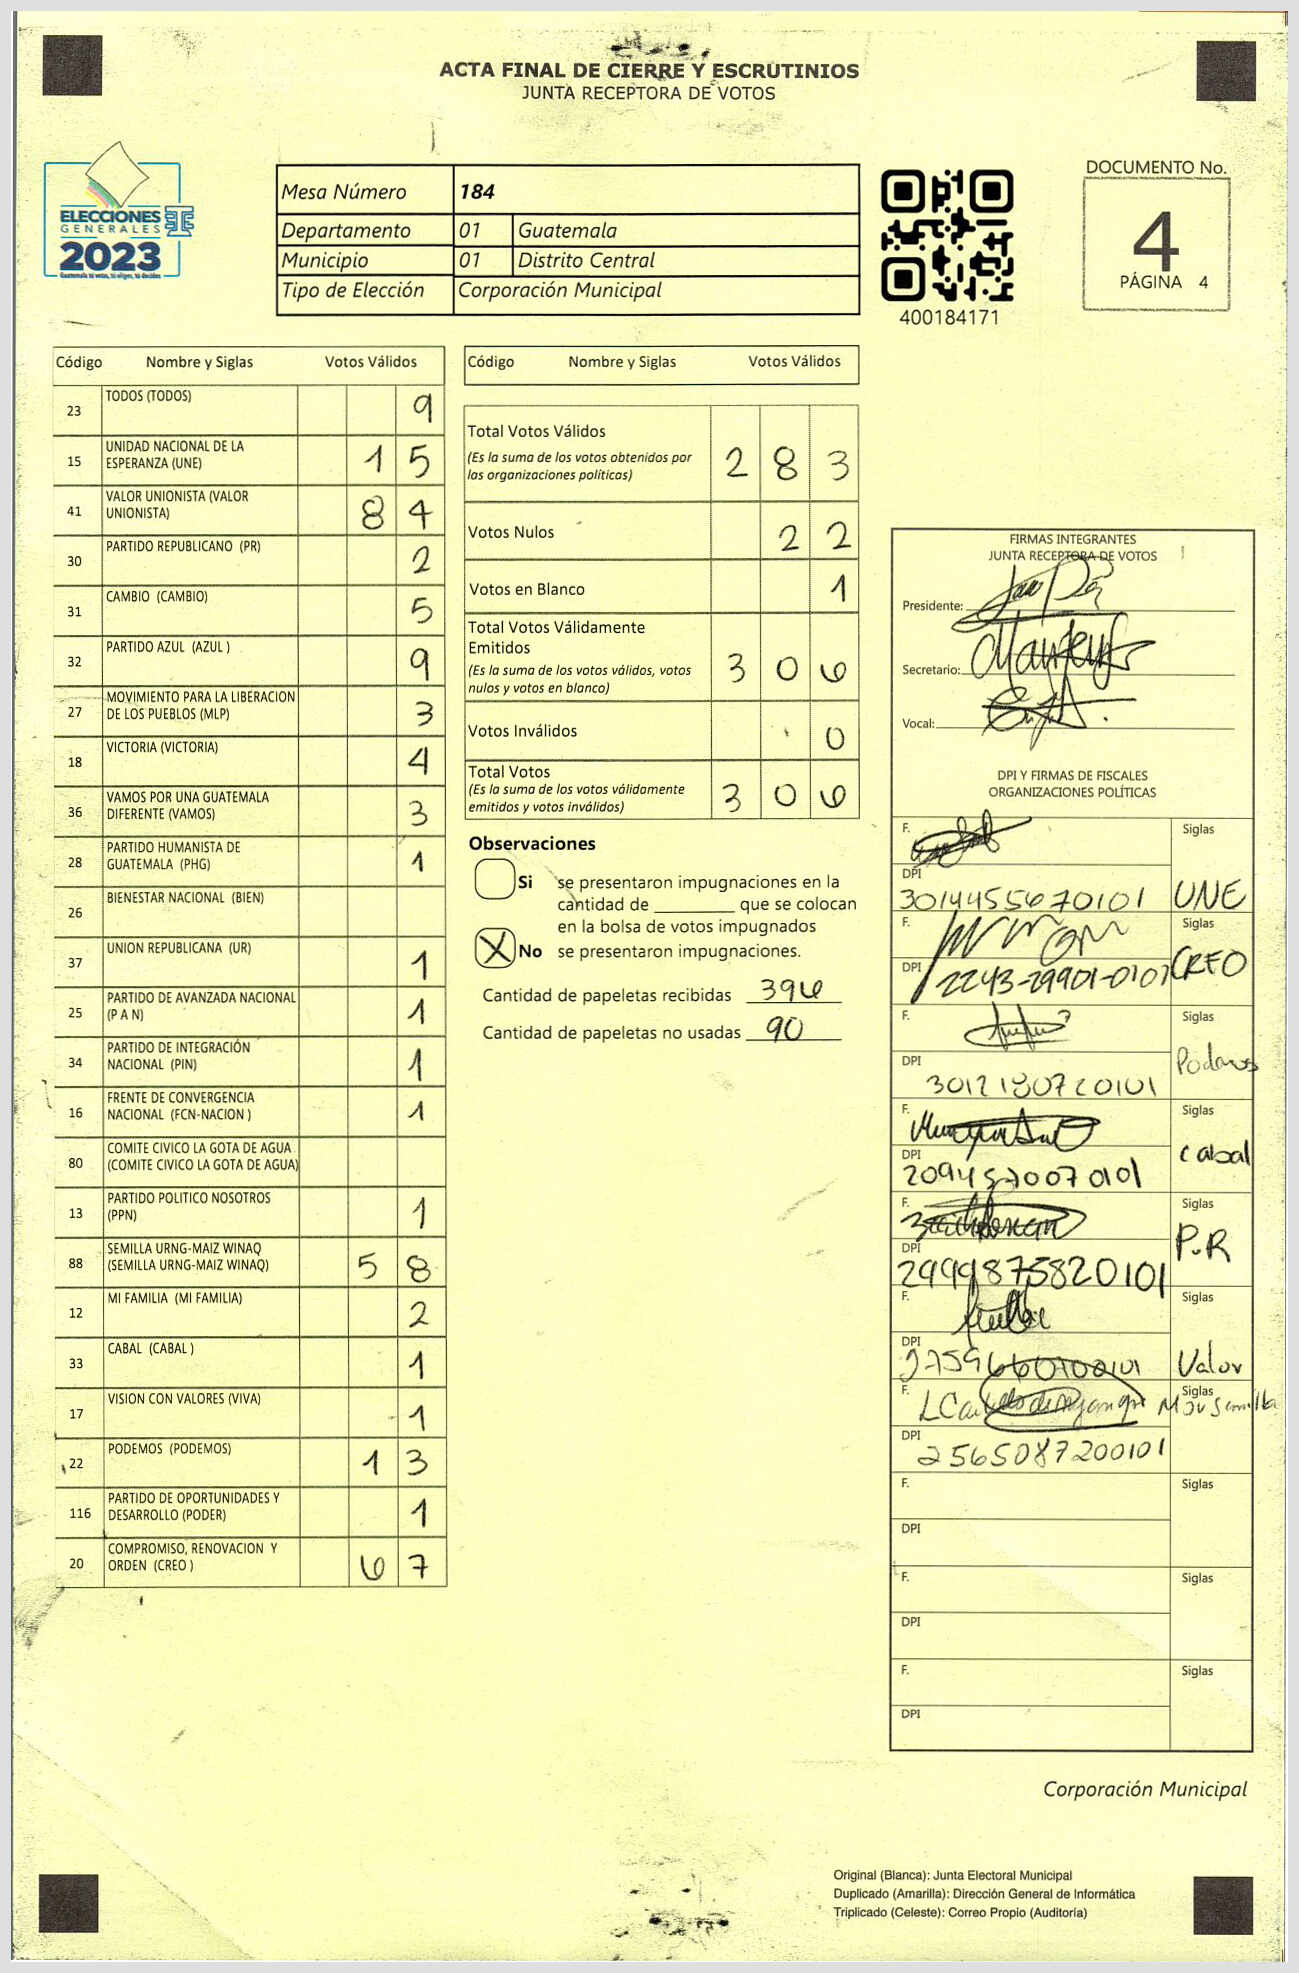 ACTA FINAL DE CIERRE Y ESCRUTINIOS
JUNTA RECEPTORA DE VOTOS
ELECCIONES
GENERALES
2023
Guatemala tú votas, tú eliges, tú decides
Mesa Número 184
Departamento 01 Guatemala
Municipio 01 Distrito Central
Tipo de Elección Corporación Municipal
400184171
DOCUMENTO No.
4
PÁGINA 4
Código Nombre y Siglas Votos Válidos
23 TODOS (TODOS) 9
15 UNIDAD NACIONAL DE LA
ESPERANZA (UNE) 15
41 VALOR UNIONISTA (VALOR
UNIONISTA) 84
30 PARTIDO REPUBLICANO (PR) 2
31 CAMBIO (CAMBIO) 5
32 PARTIDO AZUL (AZUL ) 9
27 MOVIMIENTO PARA LA LIBERACION
DE LOS PUEBLOS (MLP) 3
18 VICTORIA (VICTORIA) 4
36 VAMOS POR UNA GUATEMALA
DIFERENTE (VAMOS) 3
28 PARTIDO HUMANISTA DE
GUATEMALA (PHG) 1
26 BIENESTAR NACIONAL (BIEN)
37 UNION REPUBLICANA (UR) 1
25 PARTIDO DE AVANZADA NACIONAL
(P A N) 1
34 PARTIDO DE INTEGRACIÓN
NACIONAL (PIN) 1
16 FRENTE DE CONVERGENCIA
NACIONAL (FCN-NACION ) 1
80 COMITE CIVICO LA GOTA DE AGUA
(COMITE CIVICO LA GOTA DE AGUA)
13 PARTIDO POLITICO NOSOTROS
(PPN) 1
88 SEMILLA URNG-MAIZ WINAQ
(SEMILLA URNG-MAIZ WINAQ) 58
12 MI FAMILIA (MI FAMILIA) 2
33 CABAL (CABAL ) 1
17 VISION CON VALORES (VIVA) 1
22 PODEMOS (PODEMOS) 13
116 PARTIDO DE OPORTUNIDADES Y
DESARROLLO (PODER) 1
20 COMPROMISO, RENOVACION Y
ORDEN (CREO ) 67
Código Nombre y Siglas Votos Válidos
Total Votos Válidos
(Es la suma de los votos obtenidos por
las organizaciones políticas) 283
Votos Nulos 22
Votos en Blanco 1
Total Votos Válidamente
Emitidos
(Es la suma de los votos válidos, votos
nulos y votos en blanco) 306
Votos Inválidos 0
Total Votos
(Es la suma de los votos válidamente
emitidos y votos inválidos) 306
Observaciones
Si se presentaron impugnaciones en la
cantidad de ________ que se colocan
en la bolsa de votos impugnados
X No se presentaron impugnaciones.
Cantidad de papeletas recibidas 396
Cantidad de papeletas no usadas 90
FIRMAS INTEGRANTES
JUNTA RECEPTORA DE VOTOS
Presidente:
Secretario:
Vocal:
DPI Y FIRMAS DE FISCALES
ORGANIZACIONES POLÍTICAS
F. Siglas
DPI
3014455670101 UNE
F. Siglas
DPI 2243-29901-0101 CREO
F. Siglas
DPI Podemos
F. Siglas
DPI Cabal
F. Siglas
DPI P.R
2999875820101
F. Siglas
DPI Valor
F. Siglas
DPI
2565087200101
F. Siglas
DPI
F. Siglas
DPI
F. Siglas
DPI
Corporación Municipal
Original (Blanca): Junta Electoral Municipal
Duplicado (Amarilla): Dirección General de Informática
Triplicado (Celeste): Correo Propio (Auditoría)